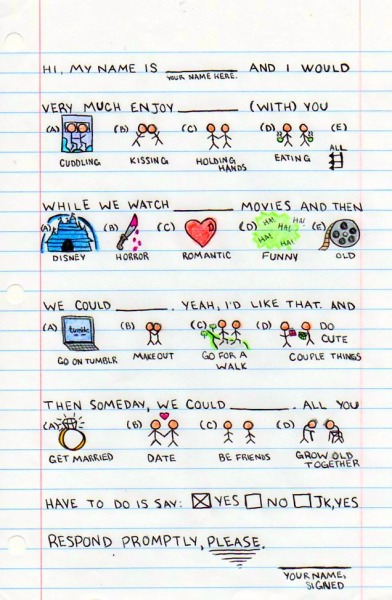 HI, MY NAME IS ________ AND I WOULD
YOUR NAME HERE.
VERY MUCH ENJOY ________ (WITH) YOU
(A) (B) (C) (D) (E)
ALL
CUDDLING KISSING HOLDING HANDS EATING
WHILE WE WATCH ________ MOVIES AND THEN
(A) (B) (C) (D) HA! HA! HA! HA! (E)
DISNEY HORROR ROMANTIC FUNNY OLD
WE COULD ________. YEAH, I'D LIKE THAT. AND
(A) tumblr (B) (C) (D) DO CUTE
GO ON TUMBLR MAKE OUT GO FOR A WALK COUPLE THINGS
THEN SOMEDAY, WE COULD ________. ALL YOU
(A) (B) (C) (D)
GET MARRIED DATE BE FRIENDS GROW OLD TOGETHER
HAVE TO DO IS SAY: ☒ YES ☐ NO ☐ JK, YES
RESPOND PROMPTLY, PLEASE.
YOUR NAME, SIGNED